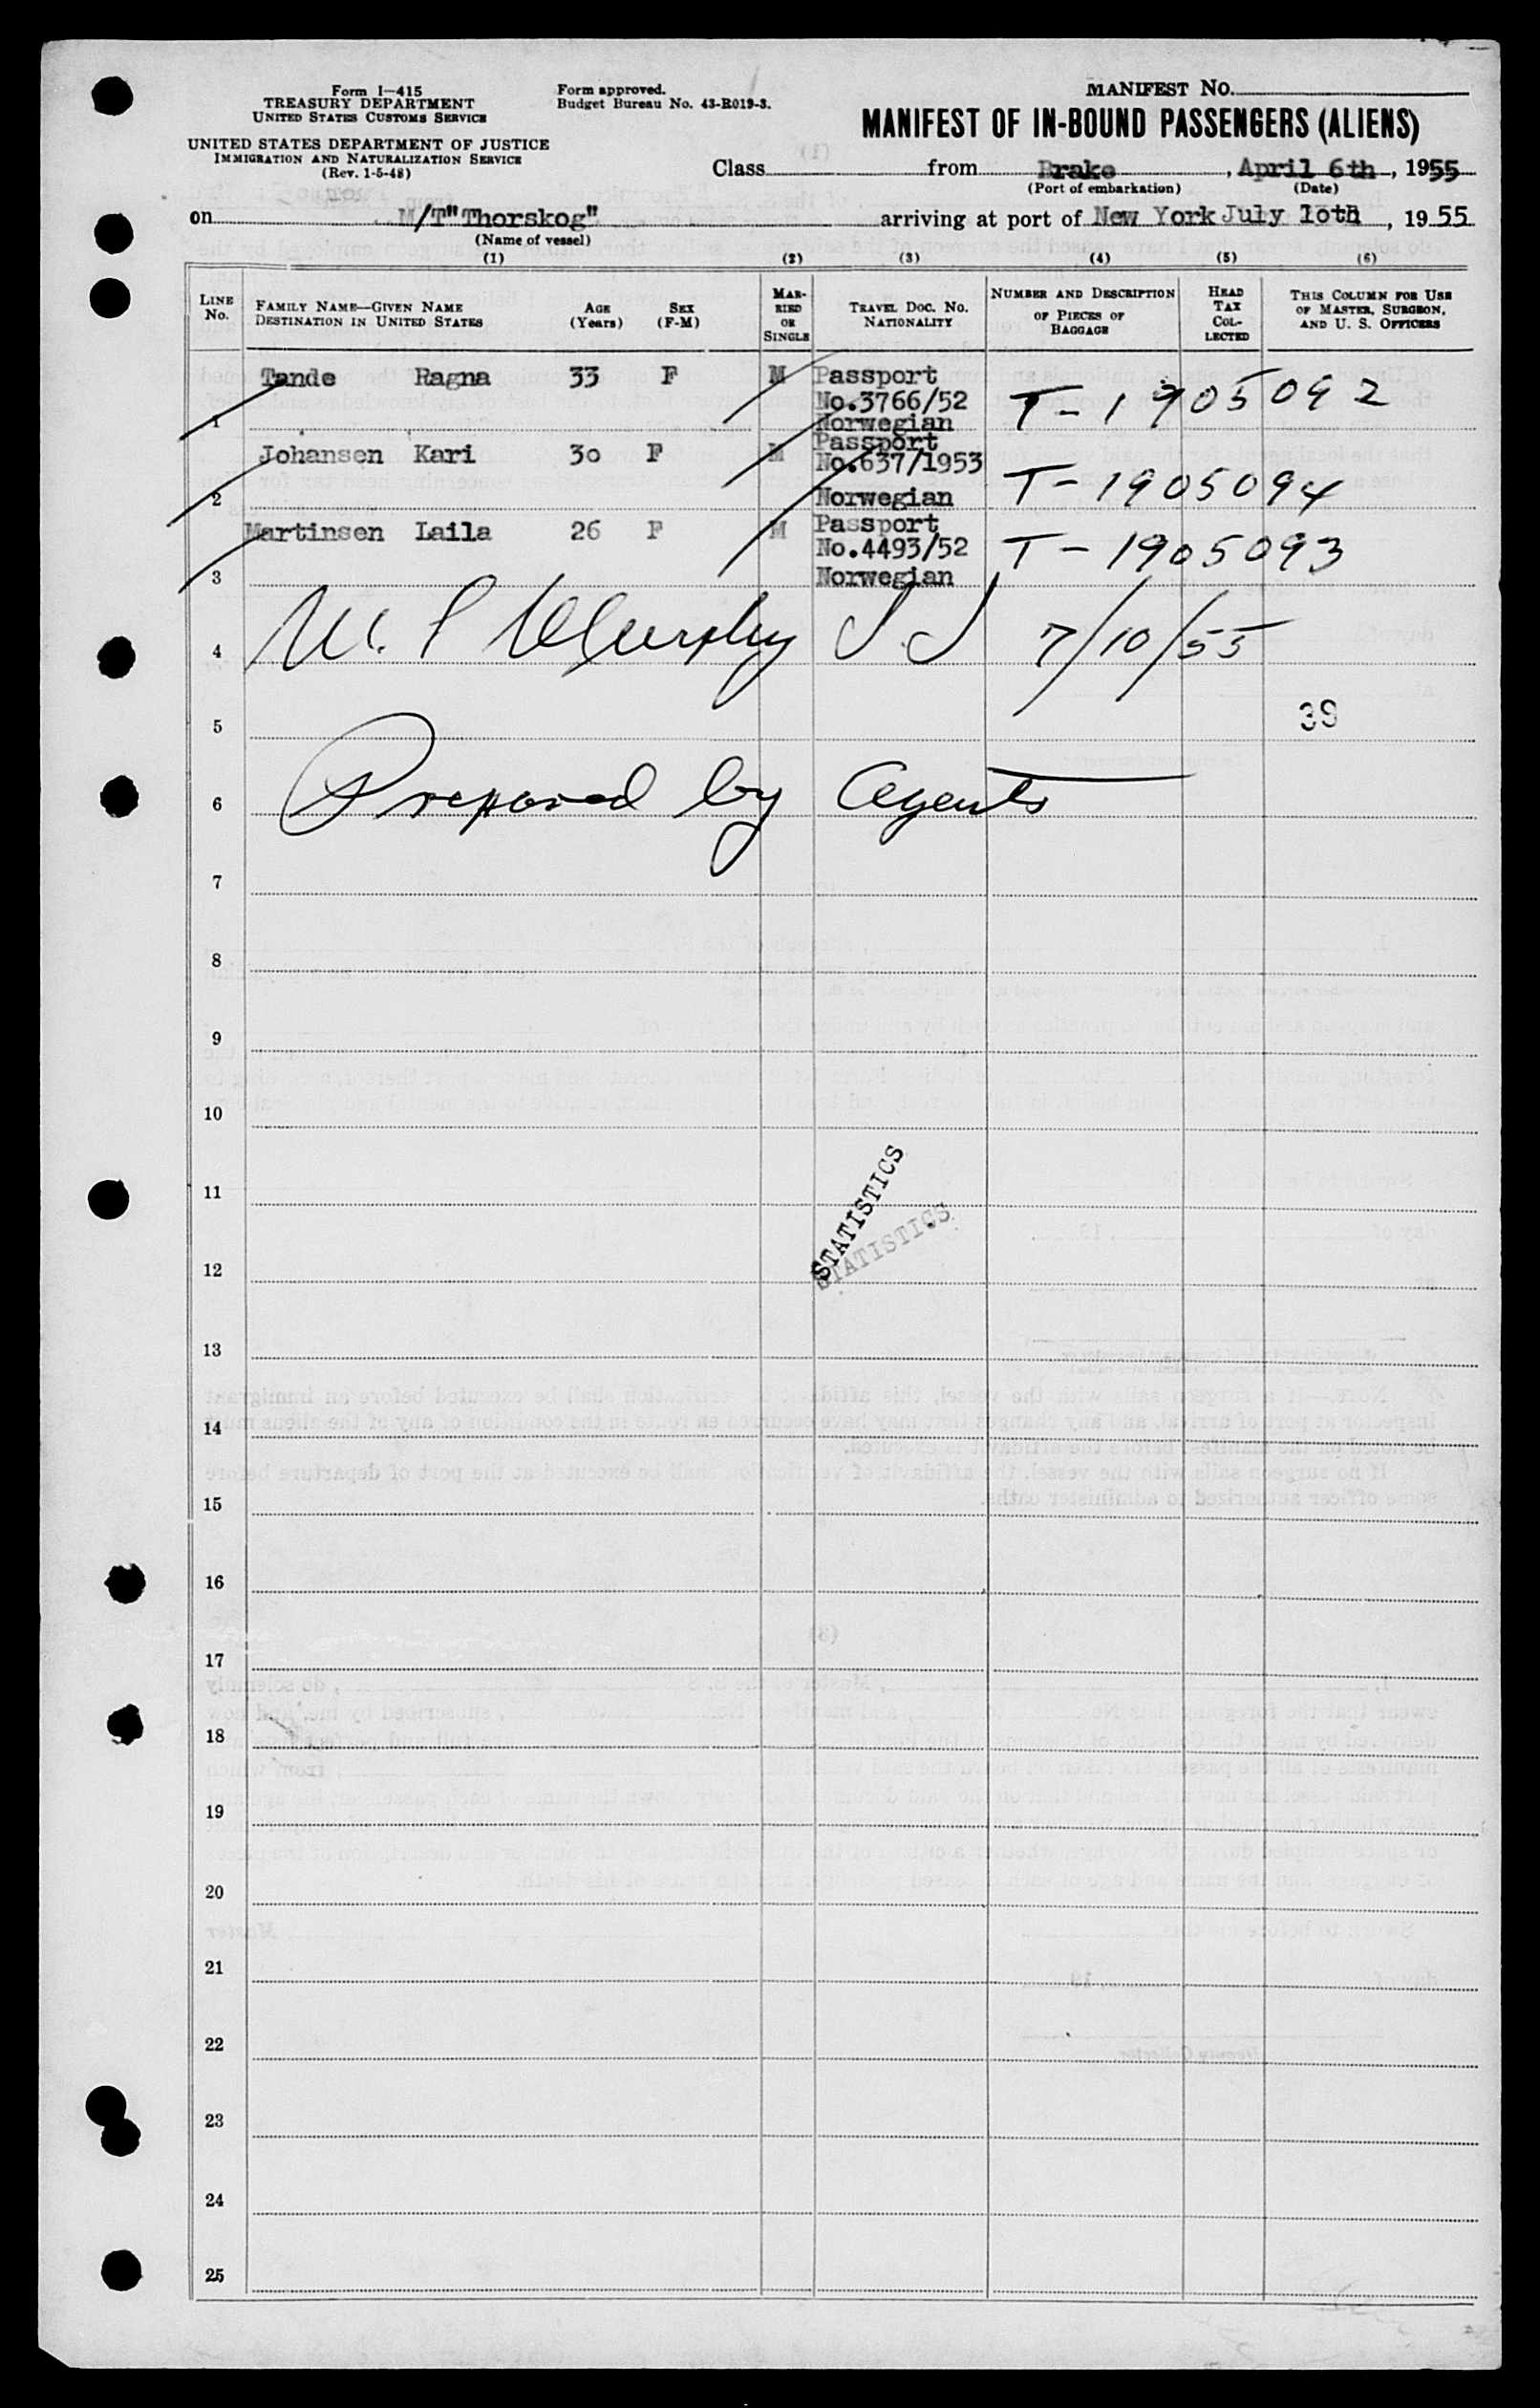 Form I-415
TREASURY DEPARTMENT
UNITED STATES CUSTOMS SERVICE
UNITED STATES DEPARTMENT OF JUSTICE
IMMIGRATION AND NATURALIZATION SERVICE
(Rev. 1-5-48)
Form approved.
Budget Bureau No. 43-R019-3.
MANIFEST NO.
MANIFEST OF IN-BOUND PASSENGERS (ALIENS)
Class from Brake, April 6th, 1955
(Port of embarkation) (Date)
on M/T"Thorskog" arriving at port of New York July 10th, 1955
(Name of vessel)
(1) (2) (3) (4) (5) (6)
LINE NO.
FAMILY NAME—GIVEN NAME
DESTINATION IN UNITED STATES
AGE (Years)
SEX (F-M)
MARRIED OR SINGLE
TRAVEL DOC. NO. NATIONALITY
NUMBER AND DESCRIPTION OF PIECES OF BAGGAGE
HEAD TAX COLLECTED
THIS COLUMN FOR USE OF MASTER, SURGEON, AND U. S. OFFICERS
1 Tande Ragna 33 F M Passport No.3766/52 Norwegian T-1905092
2 Johansen Kari 30 F M Passport No.637/1953 Norwegian T-1905094
3 Martinsen Laila 26 F M Passport No.4493/52 Norwegian T-1905093
4 Murphy 7/10/55
5 39
6 Prepared by Agents
7
8
9
10
11
STATISTICS
STATISTICS
12
13
14
15
16
17
18
19
20
21
22
23
24
25